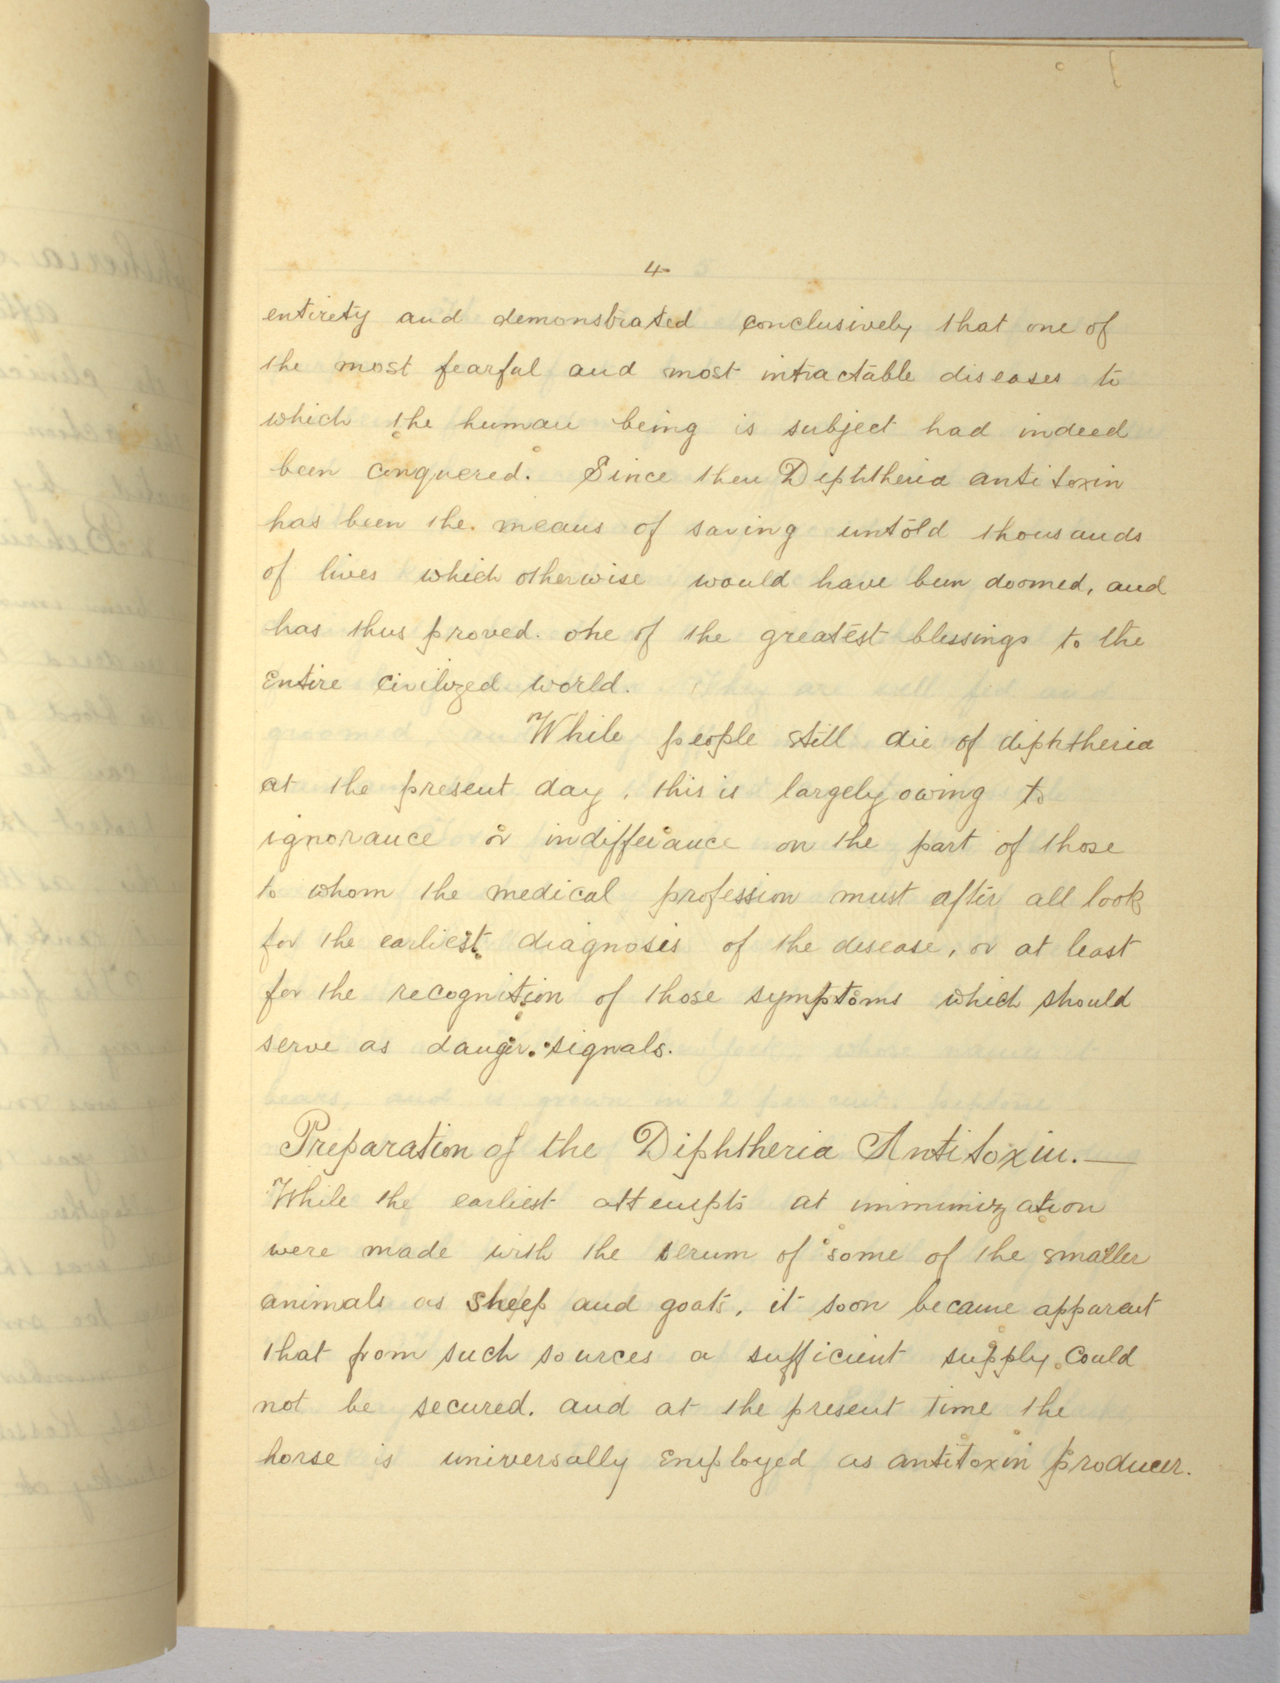 4
entirety and demonstrated conclusively that one of
the most fearful and most intractable diseases to
which the human being is subject had indeed
been conquered. Since then Diphtheria antitoxin
has been the means of saving untold thousands
of lives which otherwise would have been doomed, and
has thus proved one of the greatest blessings to the
entire civilized world.
While people still die of diphtheria
at the present day, this is largely owing to
ignorance or indifferance on the part of those
to whom the medical profession must after all look
for the earliest diagnosis of the disease, or at least
for the recognition of those symptoms which should
serve as danger signals.
Preparation of the Diphtheria Antitoxin.—
While the earliest attempts at immunization
were made with the serum of some of the smaller
animals as sheep and goats, it soon became apparent
that from such sources a sufficient supply could
not be secured. and at the present time the
horse is universally employed as antitoxin producer.